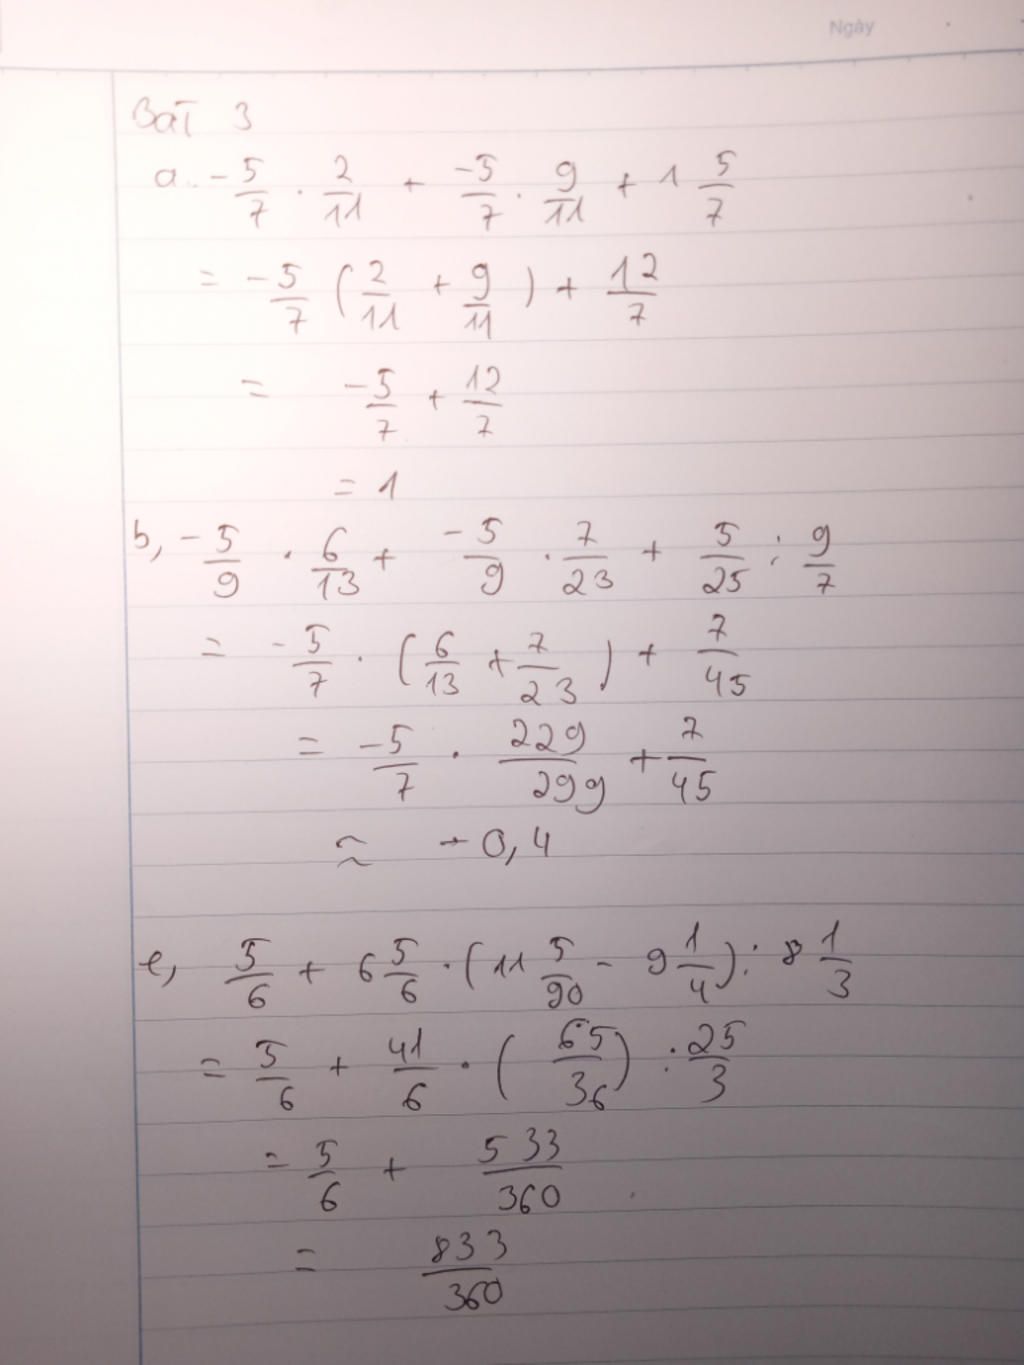 Ngày
Bài 3
a. -5/7 · 2/11 + -5/7 · 9/11 + 1 5/7
= -5/7 (2/11 + 9/11) + 12/7
= -5/7 + 12/7
= 1
b, -5/9 · 6/13 + -5/9 · 7/23 + 5/25 : 9/7
= -5/7 · (6/13 + 7/23) + 7/45
= -5/7 · 229/299 + 7/45
≈ -0,4
e, 5/6 + 6 5/6 · (11 5/90 - 9 1/4) : 8 1/3
= 5/6 + 41/6 · (65/36) : 25/3
= 5/6 + 533/360
= 833/360